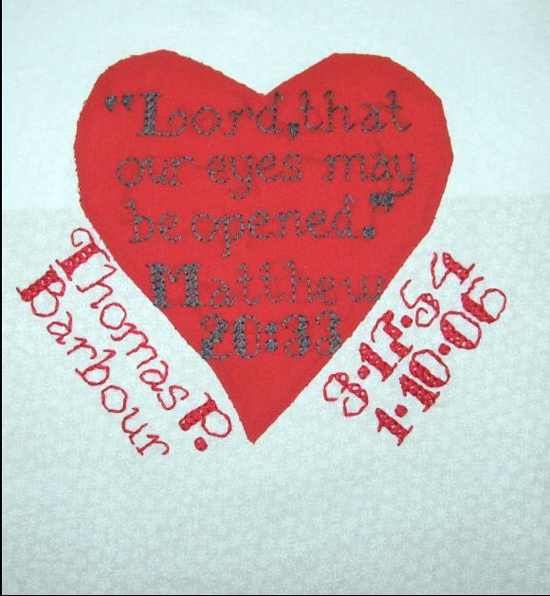 "Lord, that
our eyes may
be opened."
Matthew
20:33
Thomas P.
Barbour
3·17·54
1·10·06